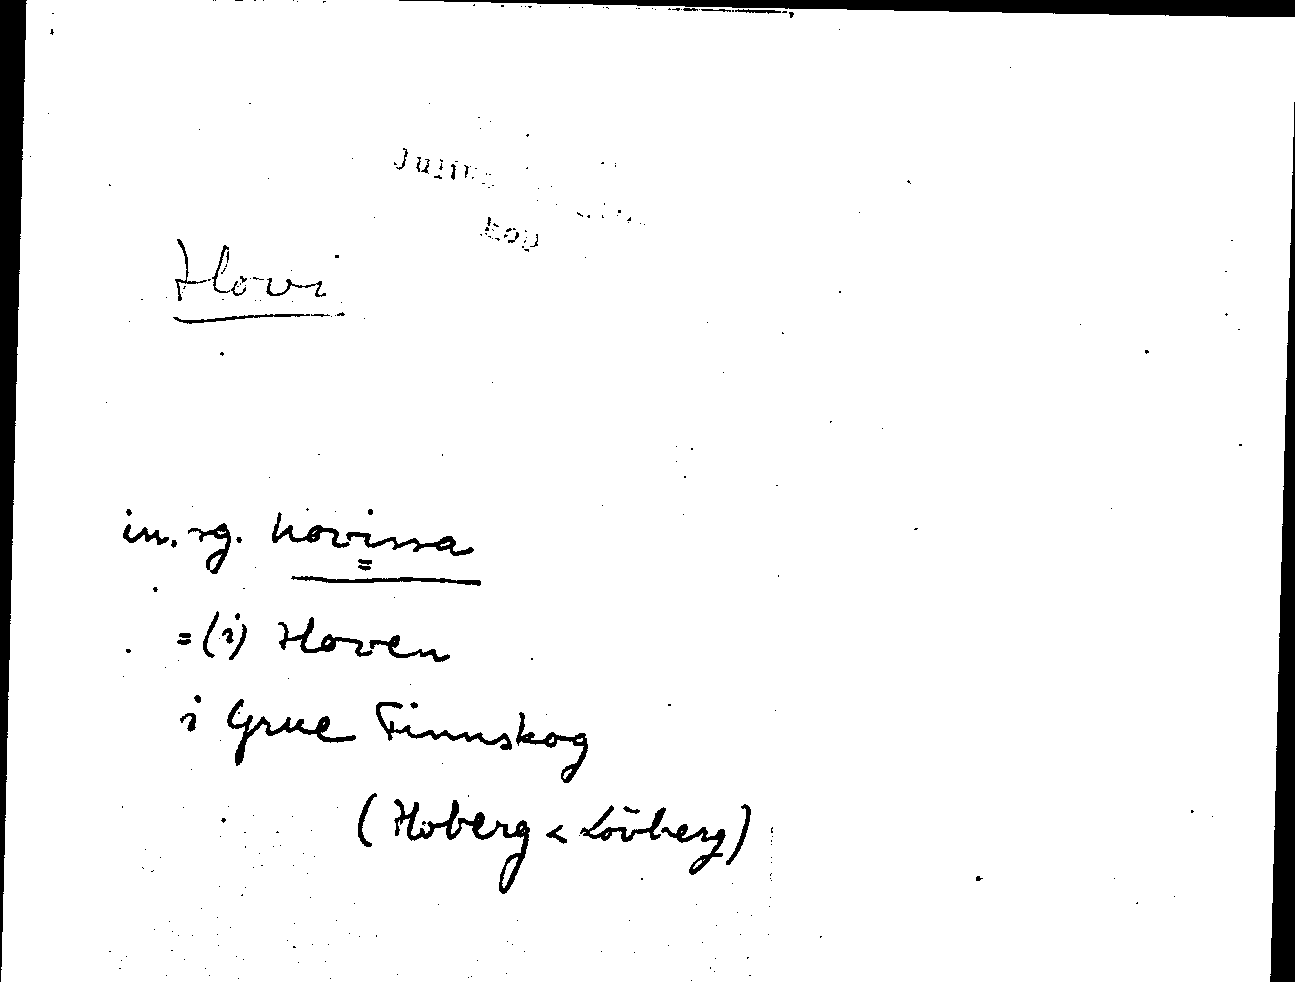 Julius
kop
Hovi
in. sg. hovissa
=
= (i) Hoven
i Grue Finnskog
(Hoberg < Lövberg)